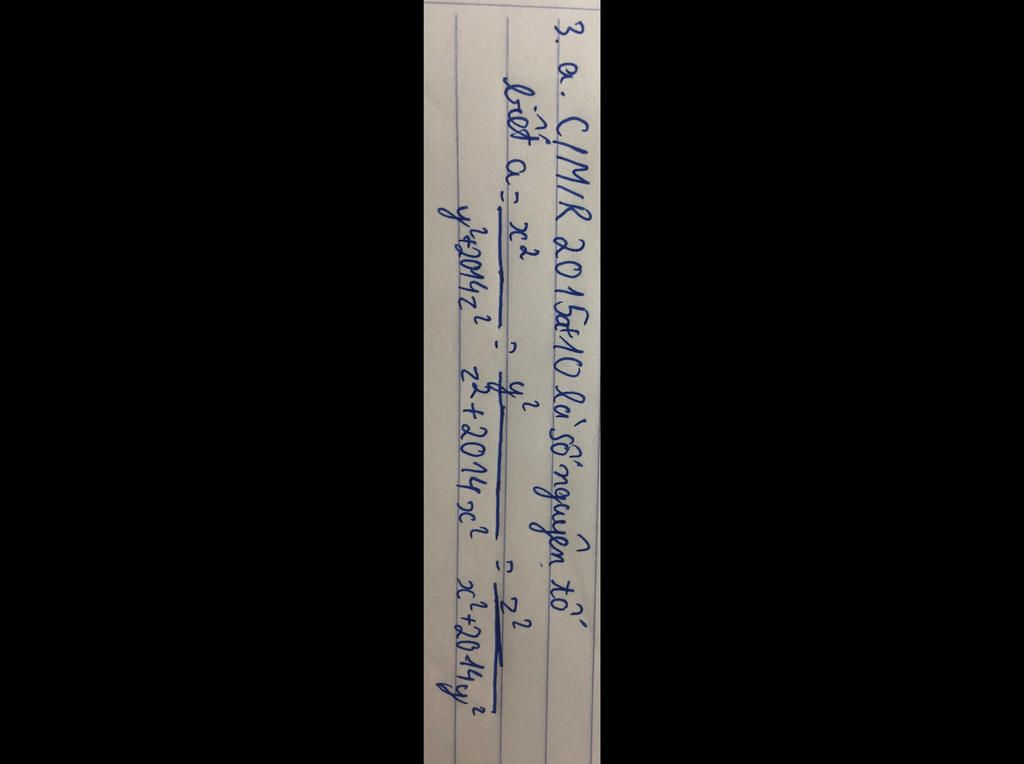 3. a. C/M/R 2015a+10 là số nguyên tố
biết a = x² = y² = z²
y²+2014z² z²+2014x² x²+2014y²